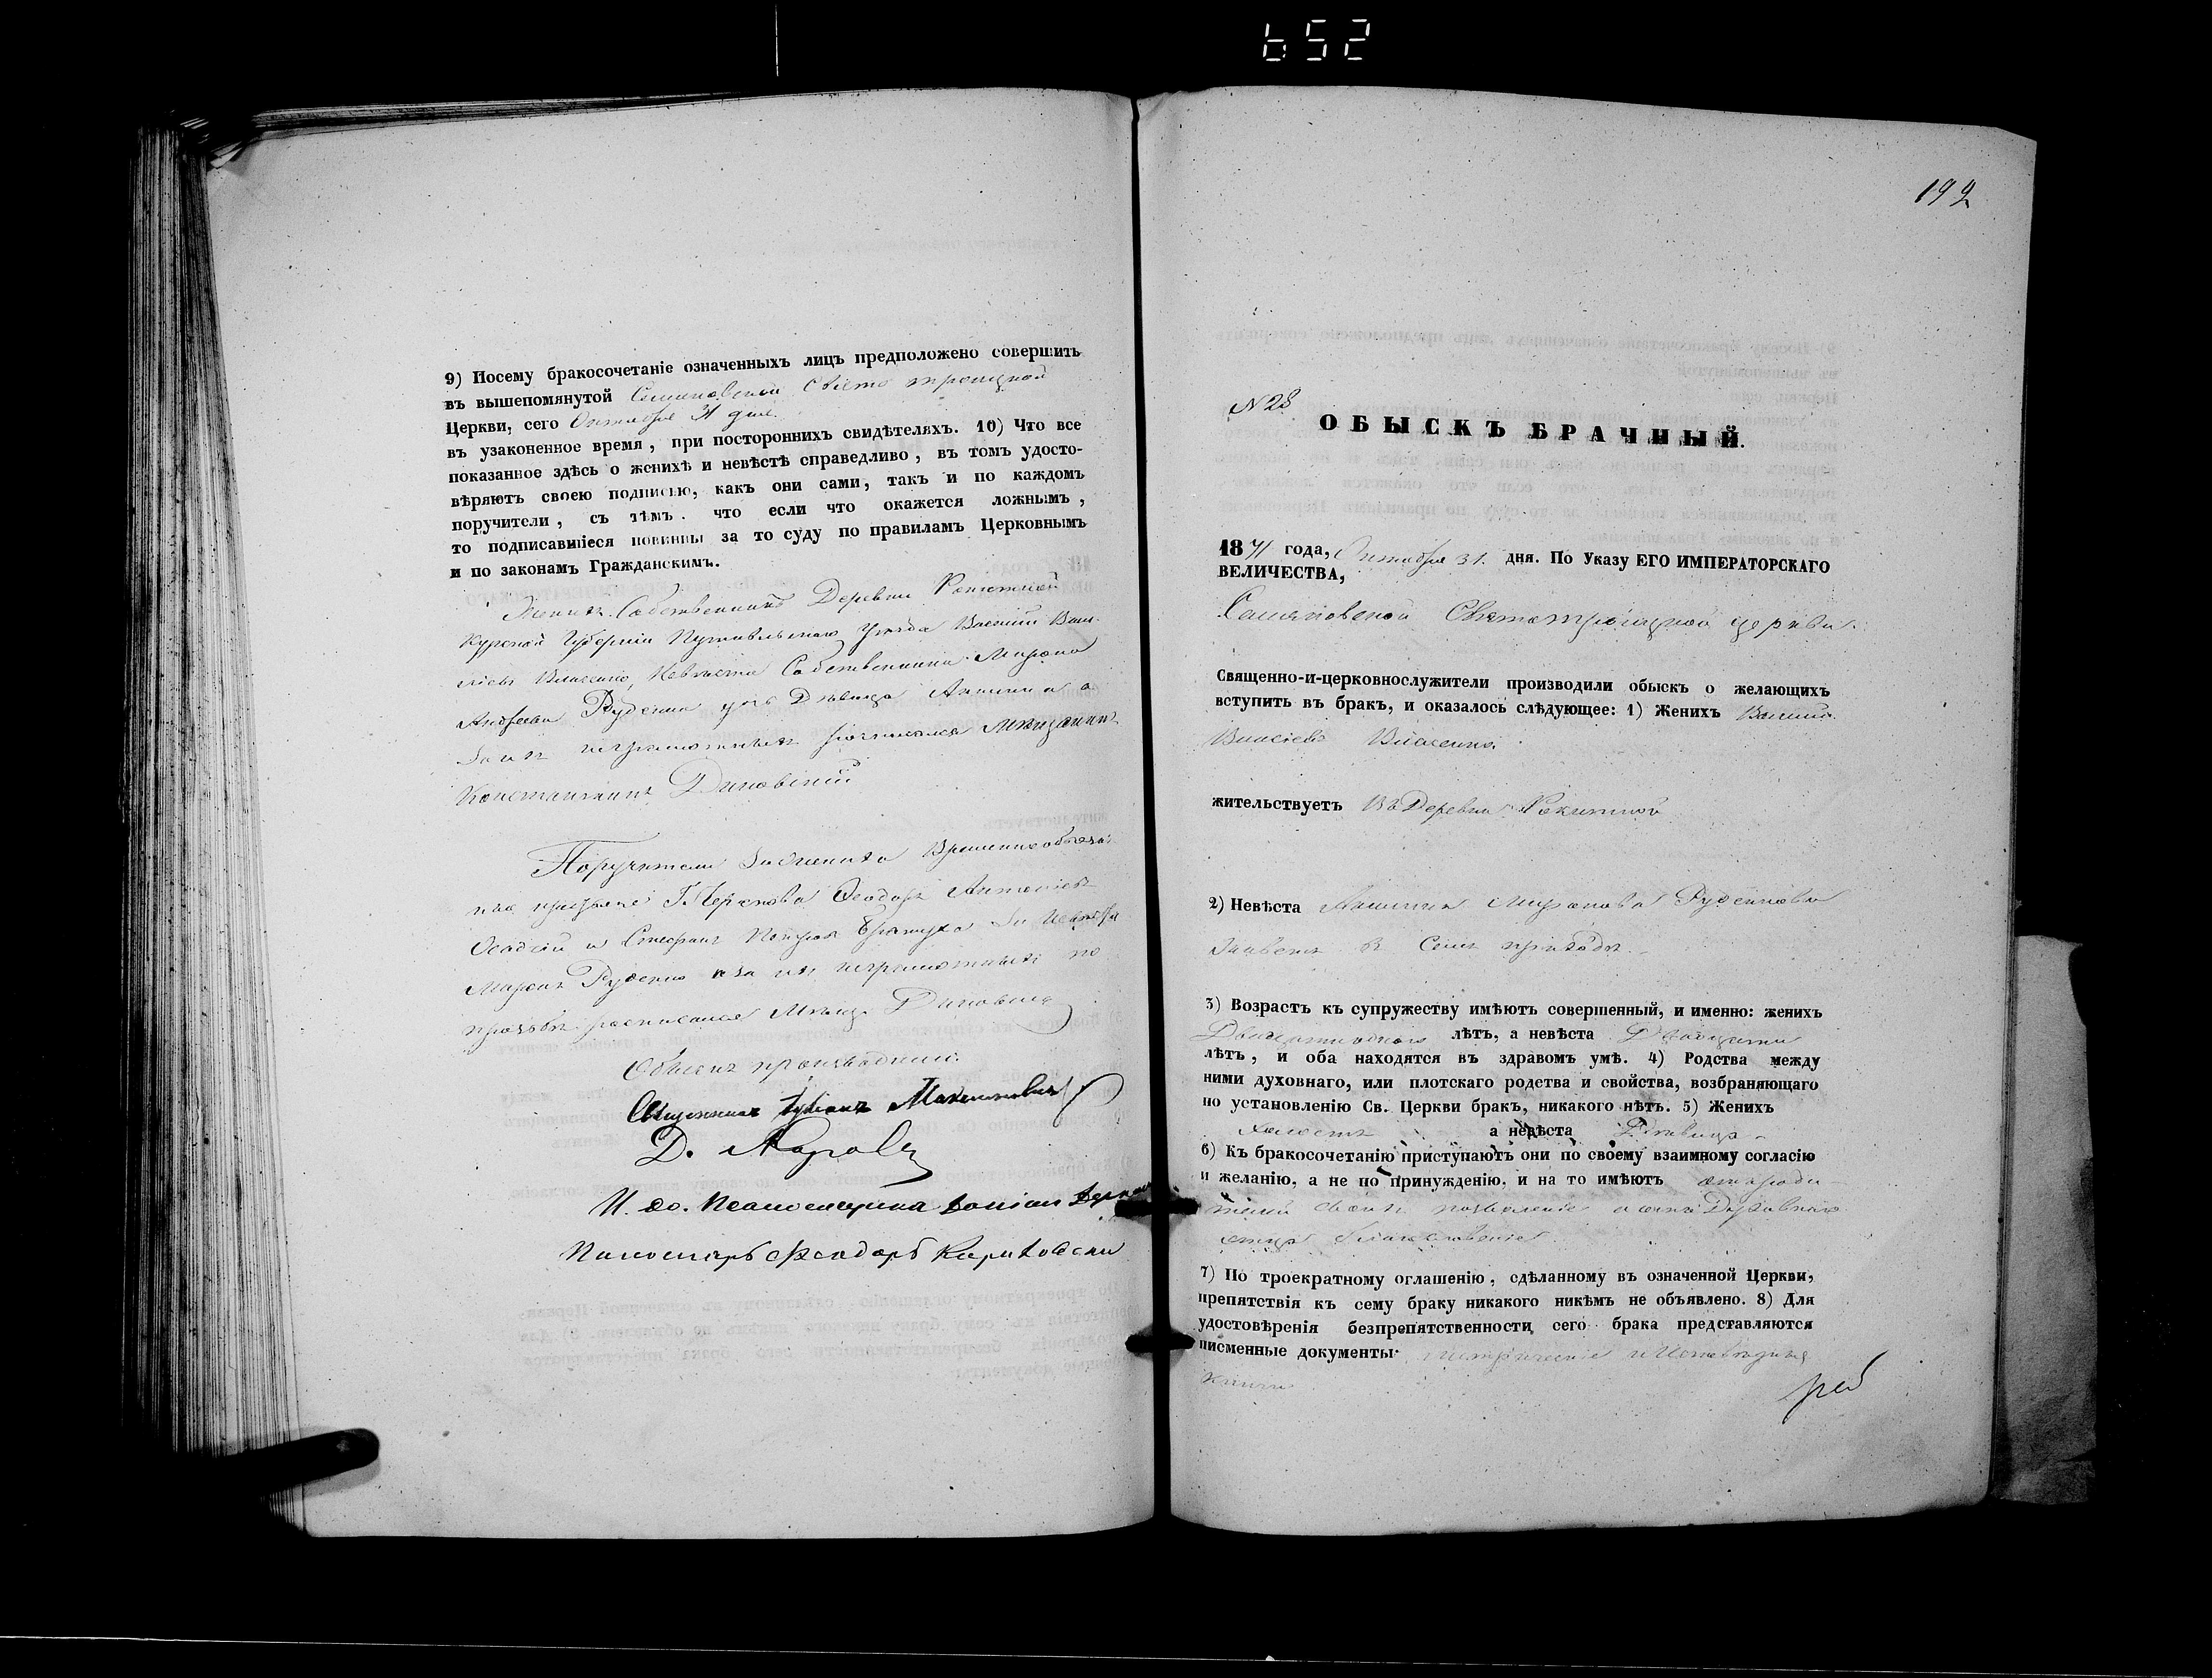 652
9) Посему бракосочетаніе означенныхъ лицъ предположено совершить
въ вышепомянутой Свято троицкой
Церкви, сего Октября 31 дня.
въ узаконенное время, при постороннихъ свидѣтеляхъ. 10) Что все
показанное здѣсь о женихѣ и невѣстѣ справедливо, въ томъ удосто-
вѣряютъ своею подписью, какъ они сами, такъ и по каждомъ
поручители, съ тѣмъ. что если что окажется ложнымъ,
то подписавшіеся повинны за то суду по правиламъ Церковнымъ
и по законамъ Гражданскимъ.
Женихъ Собственникъ Деревни Рокитной
Курской Губерніи Путивльскаго Уезда Василій Вла-
сіевъ Власенко, Невѣста Собственника Мирона
Руденка дочь Дѣвица а
неграмотныхъ росписался Мѣщанинъ
Константинъ Диковскій
Поручители Временнообяза-
Ѳеодоръ Антоніевъ
Осадчій и Стефанъ
Миронъ Руденко а за ихъ неграмотныхъ по
прозьбѣ росписался Мѣщ. Диковскій
Обыскъ производили:
Священникъ
Д.
И. до. Псаломщика
Пономарь Феодоръ
192
N 28
ОБЫСКЪ БРАЧНЫЙ.
1871 года, Октября 31. дня. По Указу ЕГО ИМПЕРАТОРСКАГО
ВЕЛИЧЕСТВА,
Святотроицкой церкви.
Священно-и-церковнослужители производили обыскъ о желающихъ
вступить въ бракъ, и оказалось слѣдующее: 1) Женихъ Василій
Власіевъ Власенко
жительствуетъ Въ Деревни Рокитной
2) Невѣста Миронова Руденкова
приходѣ.
3) Возрастъ къ супружеству имѣютъ совершенный, и именно: женихъ
лѣтъ, а невѣста Двадцати
лѣтъ, и оба находятся въ здравомъ умѣ. 4) Родства между
ними духовнаго, или плотскаго родства и свойства, возбраняющаго
по установленію Св. Церкви бракъ, никакого нѣтъ. 5) Женихъ
холостъ а невѣста Дѣвица
6) Къ бракосочетанію приступаютъ они по своему взаимному согласію
и желанію, а не по принужденію, и на то имѣютъ отъ роди
телей своихъ позволеніе Духовнаго
отца благословеніе
7) По троекратному оглашенію, сдѣланному въ означенной Церкви,
препятствія къ сему браку никакого никѣмъ не объявлено. 8) Для
удостовѣренія безпрепятственности сего брака представляются
писменные документы: метрическіе и Исповѣдныя
книги